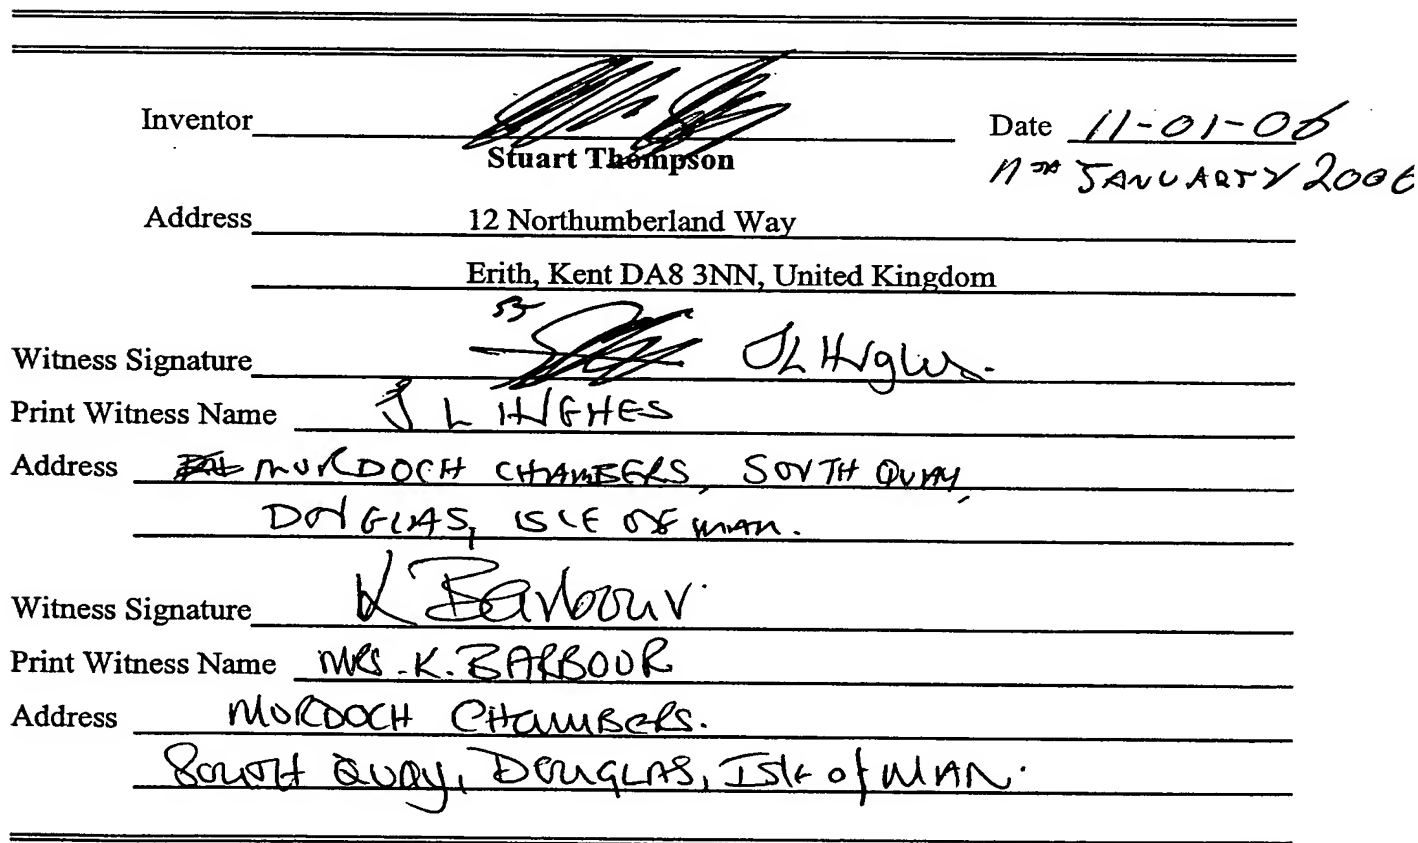 Inventor Date 11-01-06
Stuart Thompson
11TH JANUARY 2006
Address 12 Northumberland Way
Erith, Kent DA8 3NN, United Kingdom
Witness Signature JL Hughes.
Print Witness Name J L HUGHES
Address MURDOCH CHAMBERS, SOUTH QUAY,
DOUGLAS, ISLE OF MAN.
Witness Signature K Barbour
Print Witness Name MRS. K. BARBOUR
Address MURDOCH CHAMBERS.
South Quay, DOUGLAS, Isle of MAN.